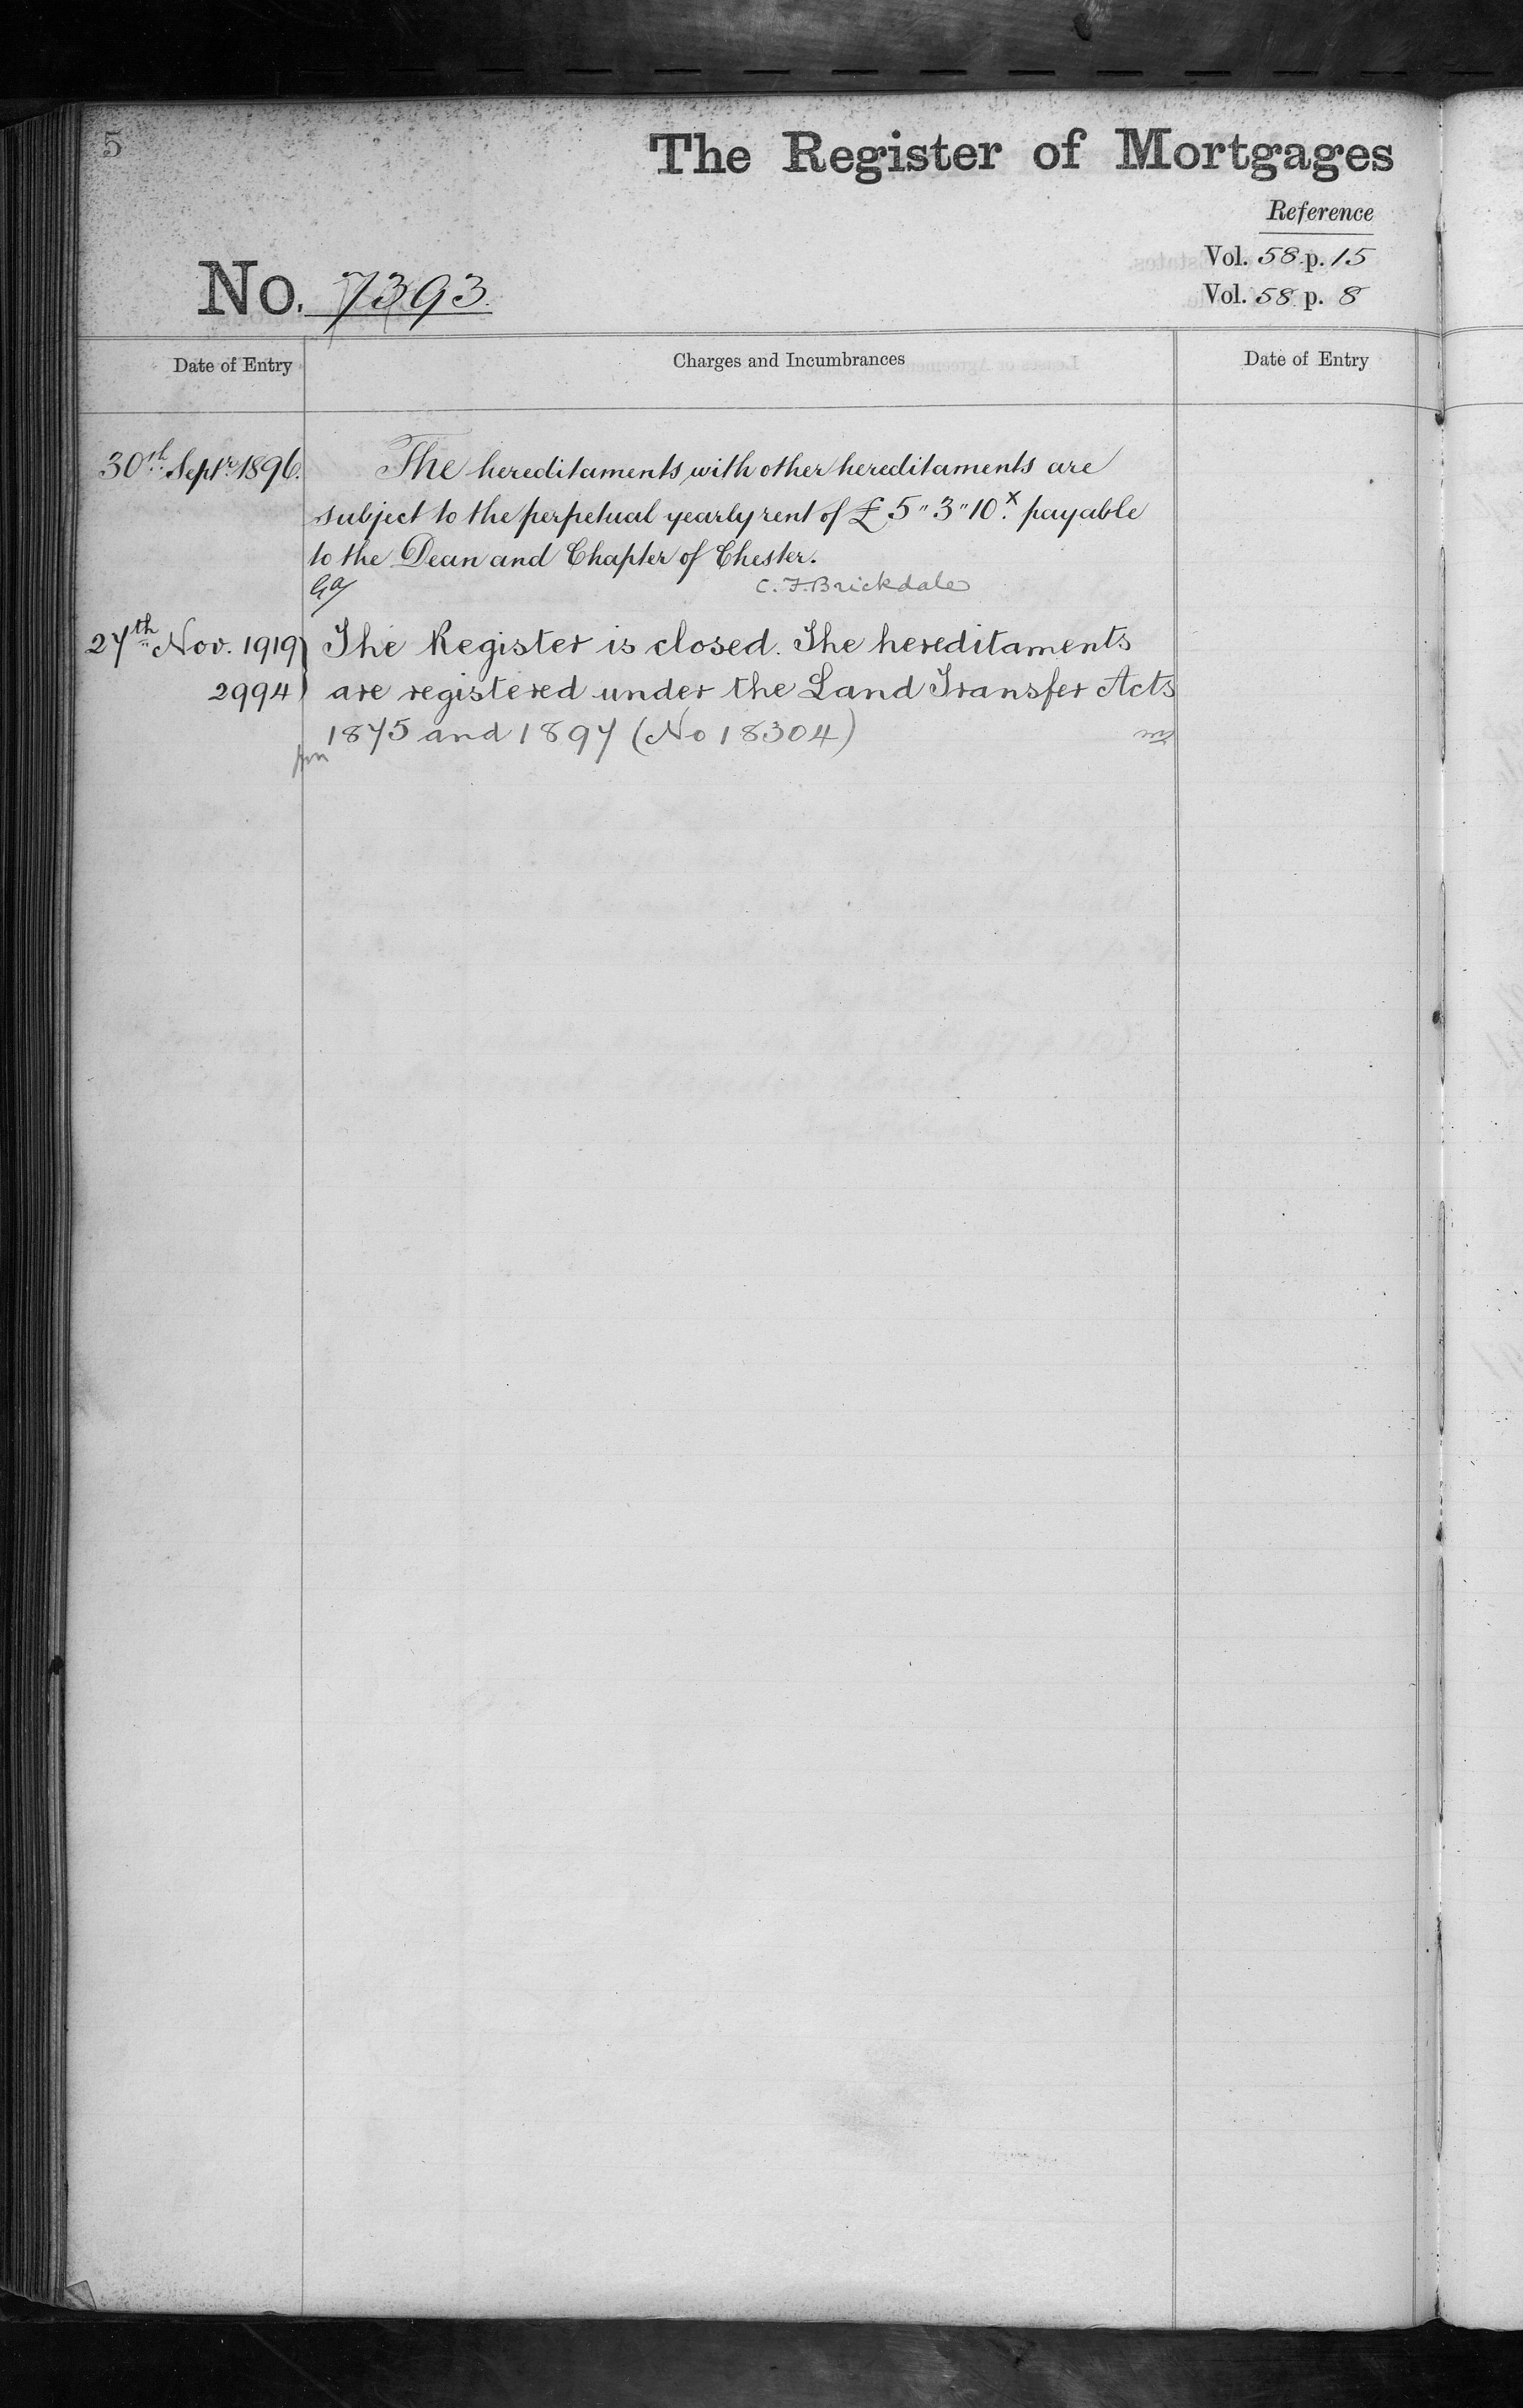 5
The Register of Mortgages
Reference
Vol. 58 p. 15
Vol. 58 p. 8
No. 7393.
Date of Entry
Charges and Incumbrances
Date of Entry
30th Septr. 1896.
The hereditaments with other hereditaments are
subject to the perpetual yearly rent of £5"3"10.x payable
to the Dean and Chapter of Chester.
C. F. Brickdale
27th Nov. 1919
The Register is closed. The hereditaments
2994
are registered under the Land Transfer Acts
1875 and 1897 (No 18304)